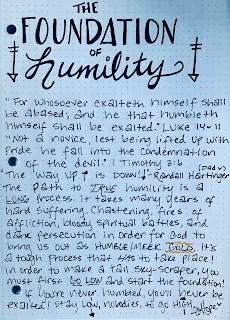 THE
FOUNDATION
OF
humility
"For whosoever exalteth himself shall
be abased; and he that humbleth
himself shall be exalted." Luke 14:11
"Not a novice, lest being lifted up with
pride he fall into the condemnation
of the devil." 1 Timothy 3:6
The "way UP ↑ is DOWN!↓" -Randall Hartinger
(Dad ♡)
The path to TRUE humility is a
LONG process. It takes many years of
hard suffering. Chastening, fires of
affliction, bloody spiritual battles, and
dark persecution in order for God to
bring us out as HUMBLE/MEEK It's
a tough process that has to take place!
In order to make a tall sky-scraper, you
must first GO LOW and start the foundation!
If you're never humbled, you'll never be
exalted! Stay low, nobodies, to go HIGH